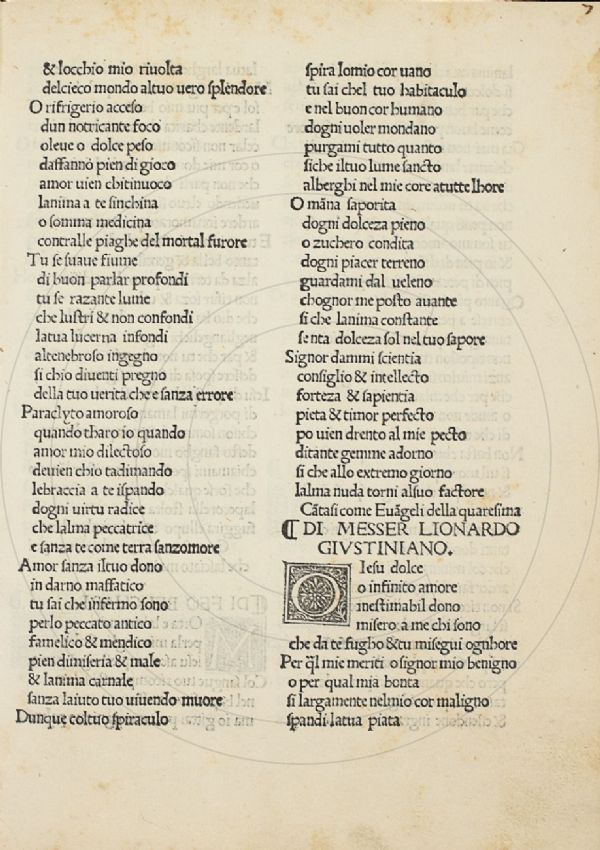 7
& locchio mio riuolta
delcieco mondo altuo uero splendore
O rifrigerio acceso
dun notricante foco
oleue o dolce peso
daffanno pien di gioco
amor uien chitinuoco
lanima a te sinchina
o somma medicina
contralle piaghe del mortal furore
Tu se suaue fiume
di buon parlar profondi
tu se razante lume
che lustri & non confondi
latua lucerna infondi
altenebroso ingegno
si chio diuenti pregno
della tuo uerita che e sanza errore
Paraclyto amoroso
quando tharo io quando
amor mio dilectoso
deuien chio tadimando
lebraccia a te ispando
dogni uirtu radice
che lalma peccatrice
e sanza te come terra sanzomore
Amor sanza iltuo dono
in darno maffatico
tu sai che infermo sono
perlo peccato antico
famelico & mendico
pien dimiseria & male
& lanima carnale
sanza laiuto tuo uiuendo muore
Dunque coltuo spiraculo
spira lomio cor uano
tu sai chel tuo habitaculo
e nel buon cor humano
dogni uoler mondano
purgami tutto quanto
siche iltuo lume sancto
alberghi nel mie core atutte lhore
O mãna saporita
dogni dolceza pieno
o zuchero condita
dogni piacer terreno
guardami dal ueleno
chognor me posto auante
si che lanima constante
senta dolceza sol nel tuo sapore
Signor dammi scientia
consiglio & intellecto
forteza & sapientia
pieta & timor perfecto
po uien drento al mie pecto
ditante gemme adorno
si che allo extremo giorno
lalma nuda torni alsuo factore
Cãtasi come Euãgeli della quaresima
¶ DI MESSER LIONARDO
GIVSTINIANO.
O Iesu dolce
o infinito amore
inestimabil dono
misero a me chi sono
che da te fugho &tu misegui ognhore
Per q̃l mie meriti o signor mio benigno
o per qual mia bonta
si largamente nelmio cor maligno
spandi latua piata